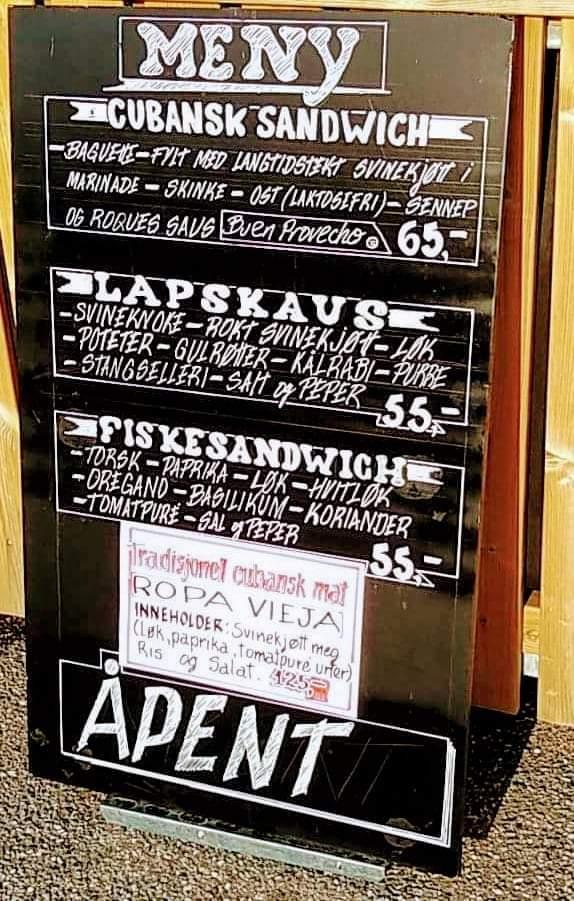 MENY
CUBANSK SANDWICH
-BAGUETTE-FYLT MED LANGTIDSTEKT SVINEKJØTT i
MARINADE - SKINKE - OST (LAKTOSEFRI) - SENNEP
OG ROQUES SAUS Buen Provecho 65,-
LAPSKAUS
-SVINEKNOKE-RØKT SVINEKJØTT-LØK
-POTETER-GULRØTTER-KÅLRABI-PURRE
-STANGSELLERI-SALT og PEPER
55,-
FISKESANDWICH
-TORSK-PAPRIKA-LØK-HVITLØK
-OREGANO-BASILIKUM-KORIANDER
-TOMATPURÉ-SAL og PEPER
55,-
Tradisjonel cubansk mat
ROPA VIEJA
INNEHOLDER: Svinekjøtt meg
(Løk, paprika, tomatpuré urter)
Ris og Salat. 125
ÅPENT